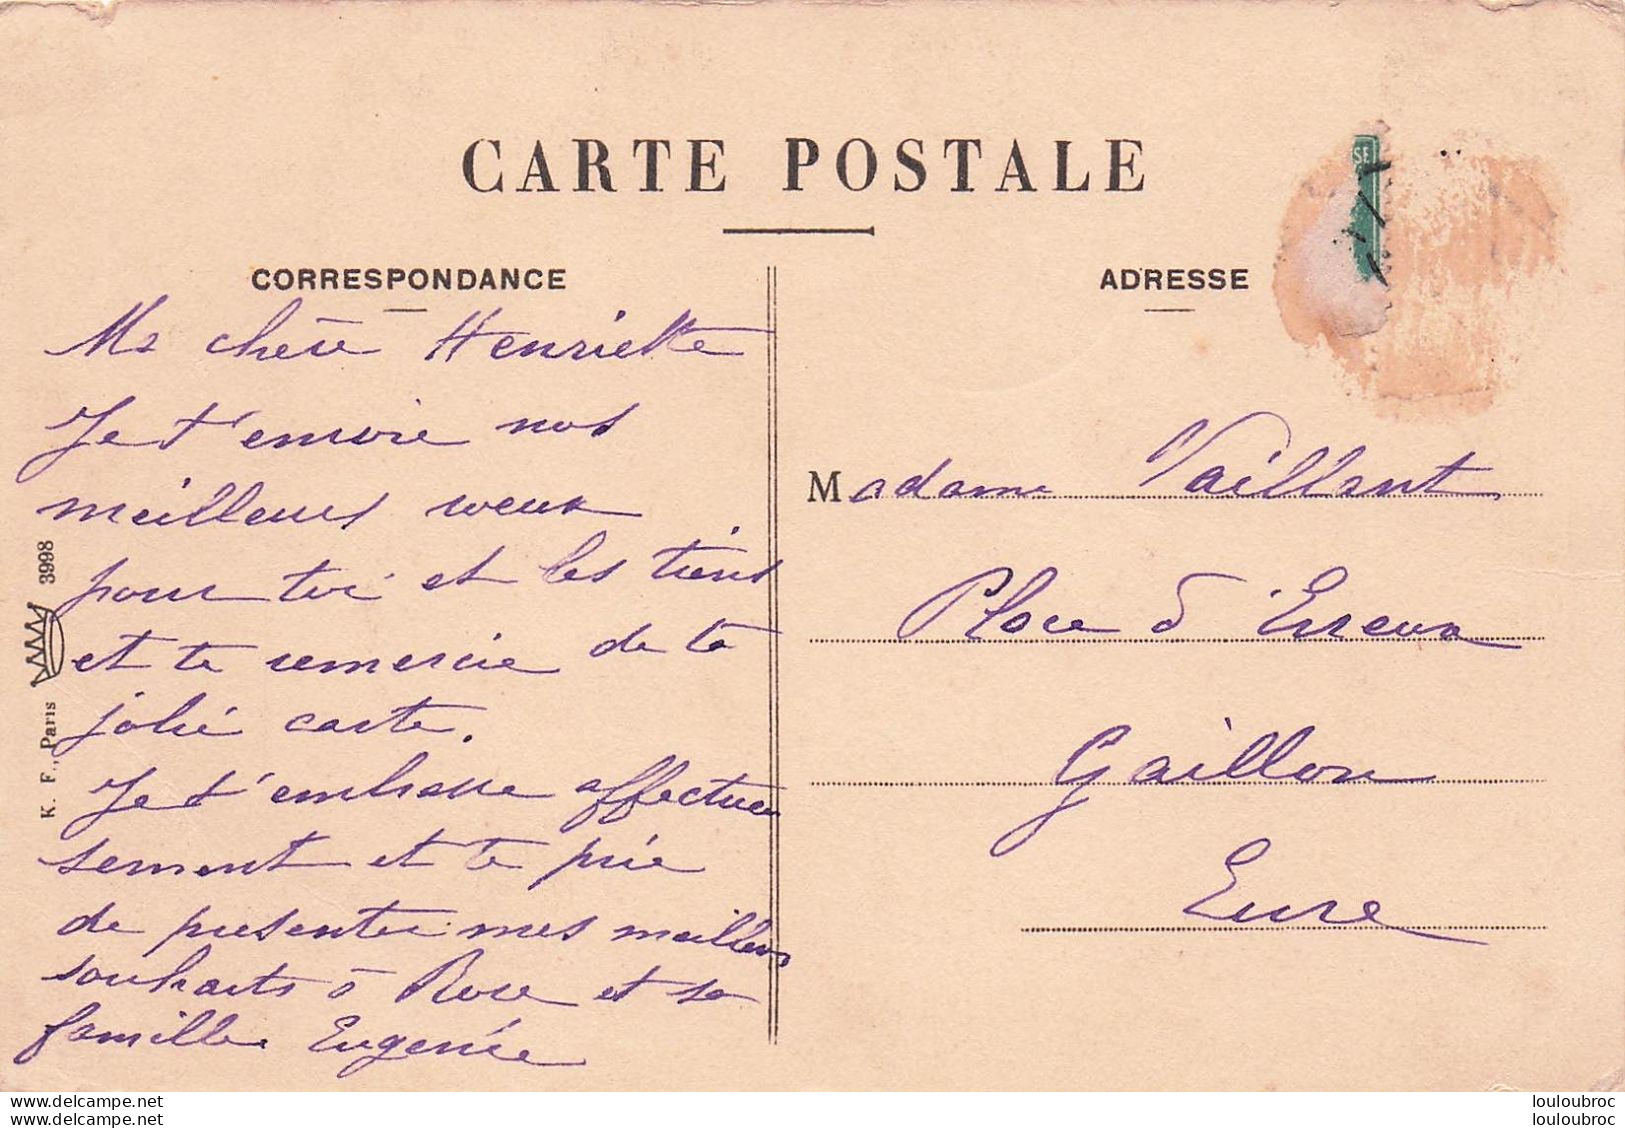 CARTE POSTALE
CORRESPONDANCE
Ma chère Henriette
Je t'envoie nos
meilleurs voeux
pour toi et les tiens
et te remercie de ta
jolie carte.
Je t'embrasse affectueu
sement et te prie
de presenter mes meilleurs
souhaits à Rose et sa
famille Eugenie
K. F., Paris 3998
ADRESSE
SE
Madame Vaillant
Place d'Evreux
Gaillon
Eure
www.delcampe.net
www.delcampe.net
louloubroc
louloubroc